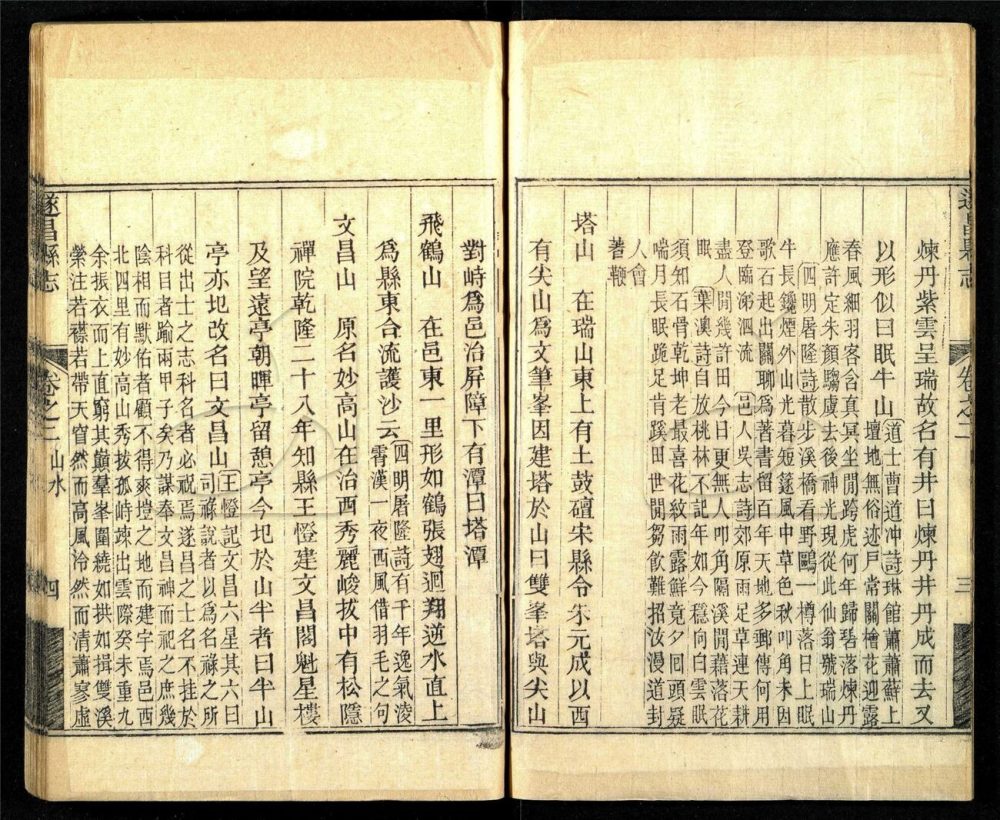 遂昌縣志 卷之二 三
煉丹紫雲呈瑞故名有井曰煉丹井丹成而去又
以形似曰眠牛山
道士曹道冲詩琳館蕭蕭蘚上
壇地無俗迹戶常關檜花迎露
春風細羽客含真冥坐閒跨虎何年歸碧落煉丹
應許定朱顏騶虞去後神光現從此仙翁號瑞山
四明屠隆詩散步溪橋看野鷗一樽落日上眠
牛長鑱煙外山光暮短篴風中草色秋叩角未因
歌石起出關聊爲著書留百年天地多郵傳何用
登臨涕泗流 邑人吳志詩郊原雨足草連天耕
盡人閒幾許田今日更無人叩角隔溪閒藉落花
眠 葉澳詩自放桃林不記年如今穩向白雲眠
須知石骨乾坤老最喜花紋雨露鮮竟夕回頭疑
喘月長眠跪足肯蹊田世閒芻飲難招汝漫道封
人會
著鞭
塔山 在瑞山東上有土鼓壇宋縣令朱元成以西
有尖山爲文筆峯因建塔於山曰雙峯塔與尖山
對峙爲邑治屏障下有潭曰塔潭
飛鶴山 在邑東一里形如鶴張翅迴翔逆水直上
爲縣東合流護沙云
四明屠隆詩有千年逸氣凌
霄漢一夜西風借羽毛之句
文昌山 原名妙高山在治西秀麗峻拔中有松隱
禪院乾隆二十八年知縣王憕建文昌閣魁星樓
及望遠亭朝暉亭留憩亭今圯於山半者曰半山
亭亦圯改名曰文昌山
王憕記文昌六星其六曰
司祿說者以爲名祿之所
從出士之志科名者必祝焉遂昌之士名不挂於
科目者踰兩甲子矣乃謀奉文昌神而祀之庶幾
陰相而默佑者顧不得爽塏之地而建宇焉邑西
北四里有妙高山秀拔孤峙竦出雲際癸未重九
余振衣而上直窮其巔羣峯圍繞如拱如揖雙溪
縈注若襟若帶天窅然而高風泠然而清蕭寥虛
遂昌縣志 卷之二 山水 四